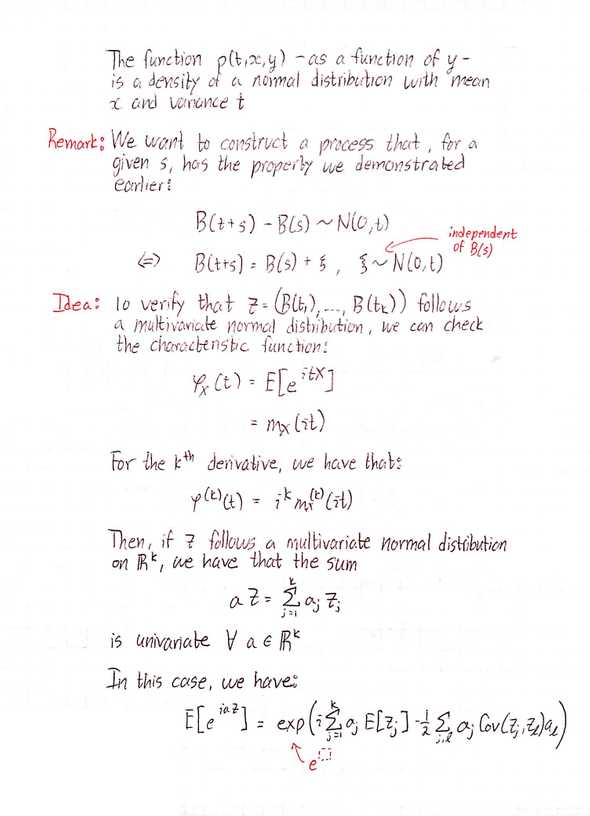 The function p(t,x,y) - as a function of y -
is a density of a normal distribution with mean
x and variance t
Remark: We want to construct a process that, for a
given s, has the property we demonstrated
earlier:
B(t+s) - B(s) ~ N(0,t)
independent
of B(s)
⇔ B(t+s) = B(s) + ξ, ξ ~ N(0,t)
Idea: To verify that Z = (B(t₁), ..., B(tₖ)) follows
a multivariate normal distribution, we can check
the characteristic function:
φₓ(t) = E[e^{itX}]
= mₓ(it)
For the kᵗʰ derivative, we have that:
φ^{(k)}(t) = i^k m_X^{(k)}(it)
Then, if Z follows a multivariate normal distribution
on ℝᵏ, we have that the sum
aZ = ∑_{j=1}^{k} a_j Z_j
is univariate ∀ a ∈ ℝᵏ
In this case, we have:
E[e^{iaZ}] = exp(i∑_{j=1}^{k} a_j E[Z_j] - ½ ∑_{j,l} a_j Cov(Z_j, Z_l) a_l)
e